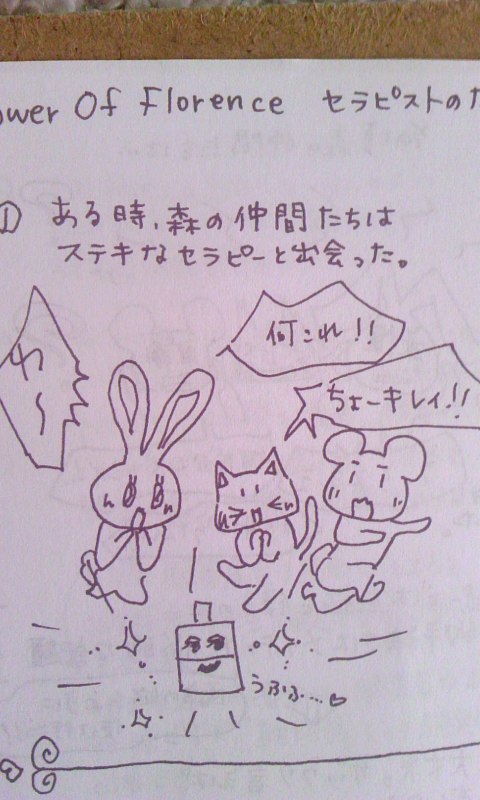 ower Of Florence セラピストの
① ある時、森の仲間たちは
ステキなセラピーと出会った。
何これ!!
わ〜
ちょーキレイ!!
うふふ…♡